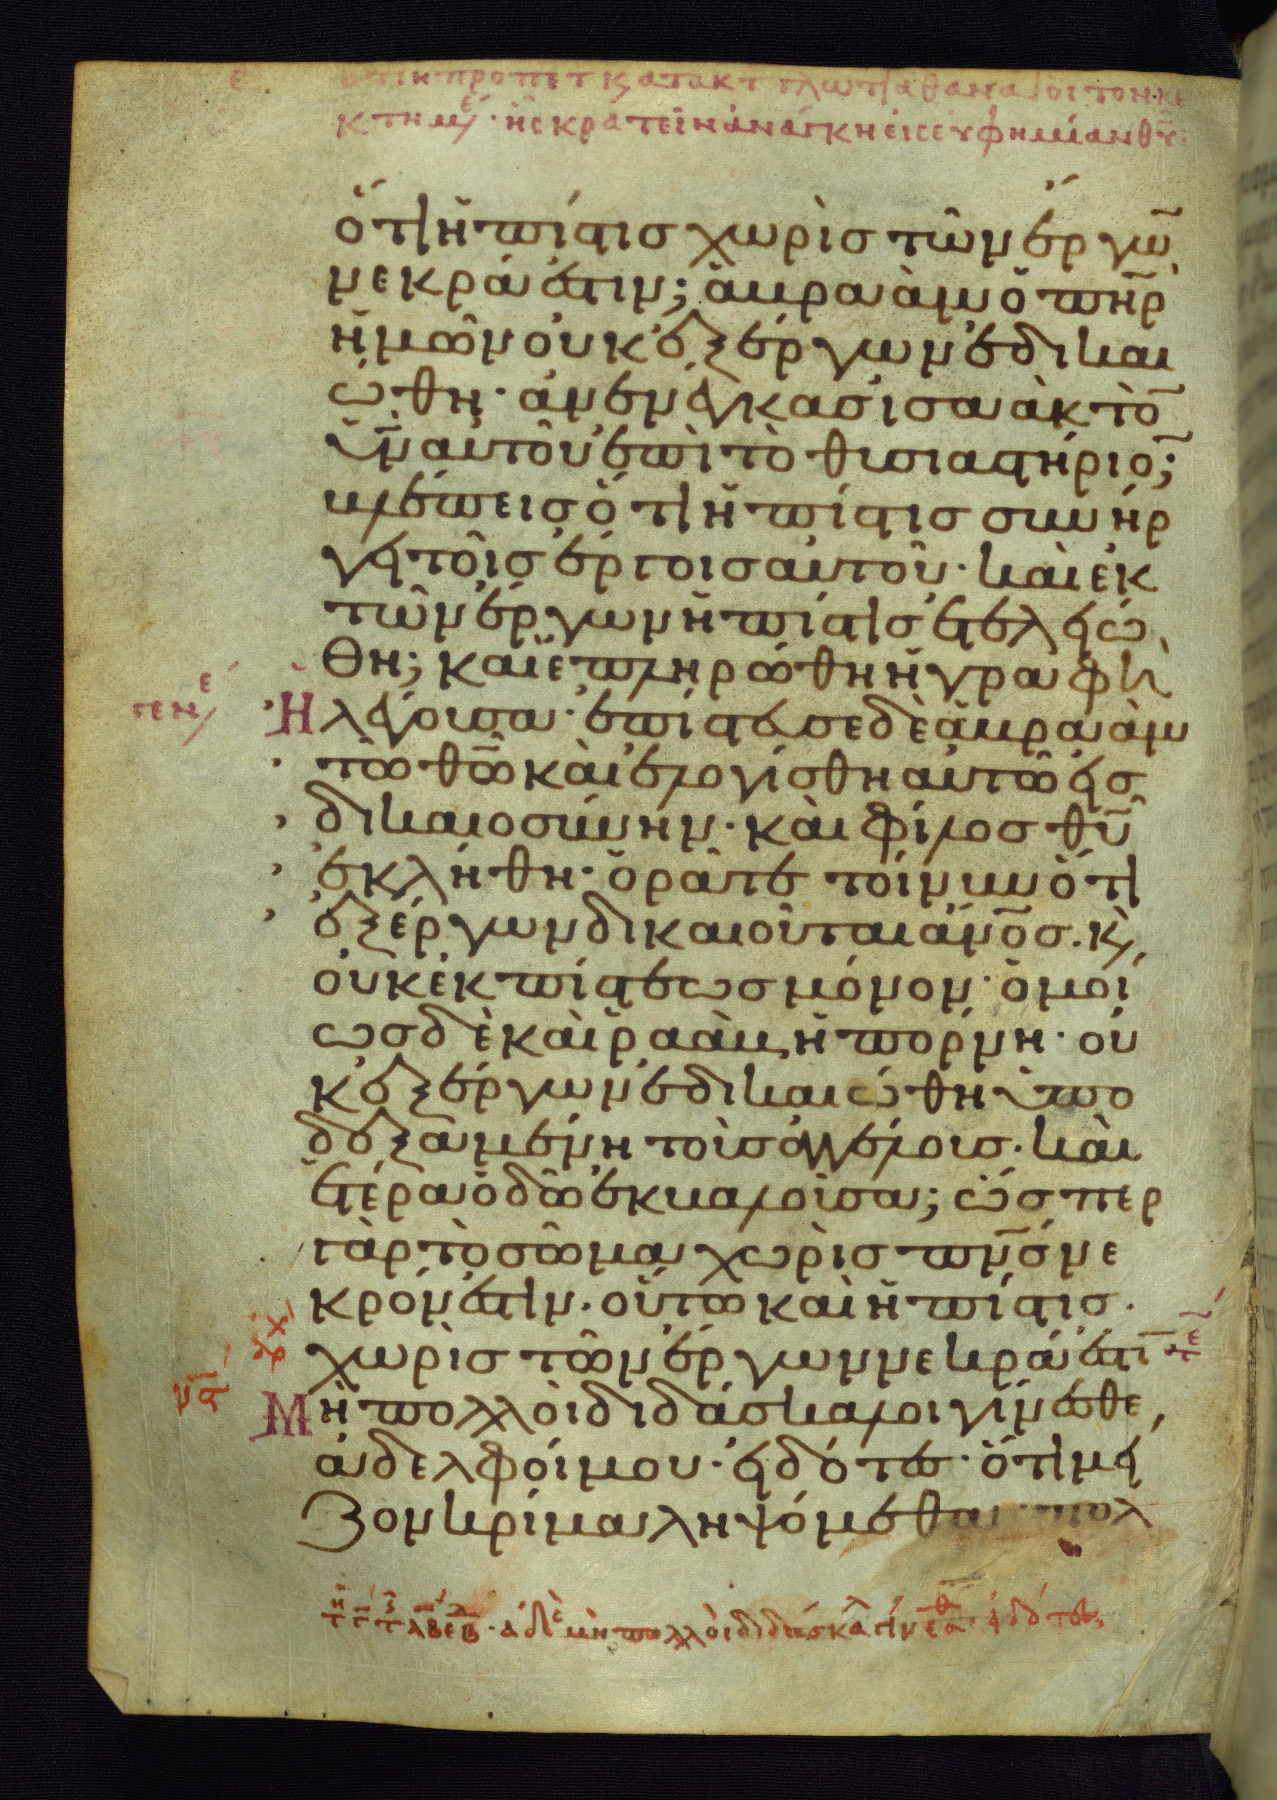 κτημ· ἢ ἐκράτει ἡ ἀνάγκη εἰς εὐφημίαν θυ
ὅτι ἡ πίστις χωρὶς τῶν ἔργω̄
νεκρά ἐστιν; ἀβραὰμ ὁ πη̄ρ
ἡμῶν οὐκ ἐξ ἔργων ἐδικαι
ώθη· ἀνενέγκας ἰσαὰκ τὸ̄
ῡν αὐτοῦ ἐπὶ τὸ θυσιαστήριο̄;
βλέπεις ὅτι ἡ πίστις συνήρ
γει τοῖς ἔργοις αὐτοῦ· καὶ ἐκ
τῶν ἔργων ἡ πίστις ἐτελειώ
θη; καὶ ἐπληρώθη ἡ γραφὴ
Ἡ λέγουσα· ἐπίστευσε δὲ ἀβραὰμ
τῶ θ̄ω καὶ ἐλογίσθη αὐτῶ εἰς
δικαιοσύνην· καὶ φίλος θ̄υ
ἐκλήθη· ὁρᾶτε τοίνυν ὅτι
ἐξ ἔργων δικαιοῦται ἄν̄ος. κ̀
οὐκ ἐκ πίστεως μόνον· ὁμοί
ως δὲ καὶ ῥαὰβ ἡ πόρνη· οὐ
κ ἐξ ἔργων ἐδικαιώθη ὑπο
δεξαμένη τοὺς ἀγγέλους· καὶ
ἑτέρα ὁδῶ ἐκβαλοῦσα; ὥσπερ
γὰρ τὸ σῶμα χωρὶς πν̄ς νε
κρόν ἐστιν· οὕτω καὶ ἡ πίστις
χωρὶς τῶν ἔργων νεκρά ἐστῑ
Μὴ πολλοὶ διδάσκαλοι γίνεσθε,
ἀδελφοί μου· εἰδότες· ὅτι μεῖ
ζον κρίμα ληψόμεθα· πολ
ἀδε μὴ πολλοὶ διδάσκαλ γίνεσθ εἰδότες